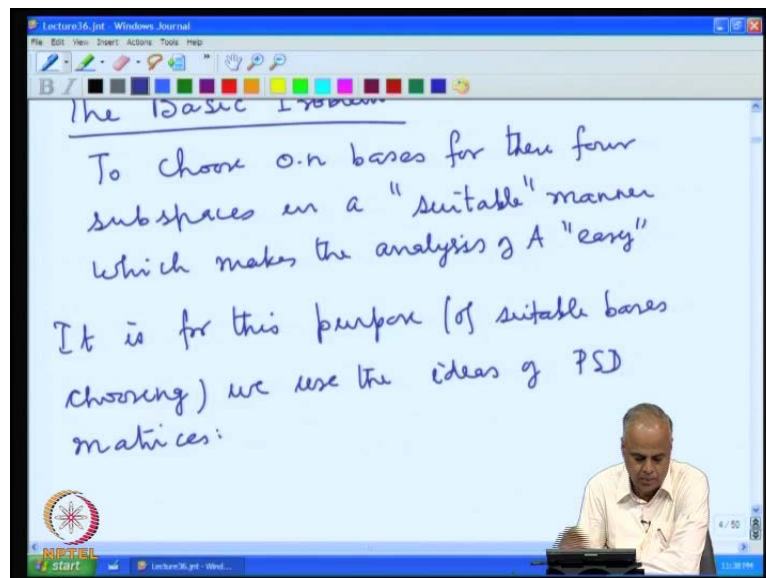 Lecture36.jnt - Windows Journal
File Edit View Insert Actions Tools Help
B I
The Basic Problem
To choose o.n bases for these four
subspaces in a "suitable" manner
which makes the analysis of A "easy"
It is for this purpose (of suitable bases
choosing) we use the ideas of PSD
matrices:
4 / 50
NPTEL
start
Lecture36.jnt - Wind...
11:38 PM